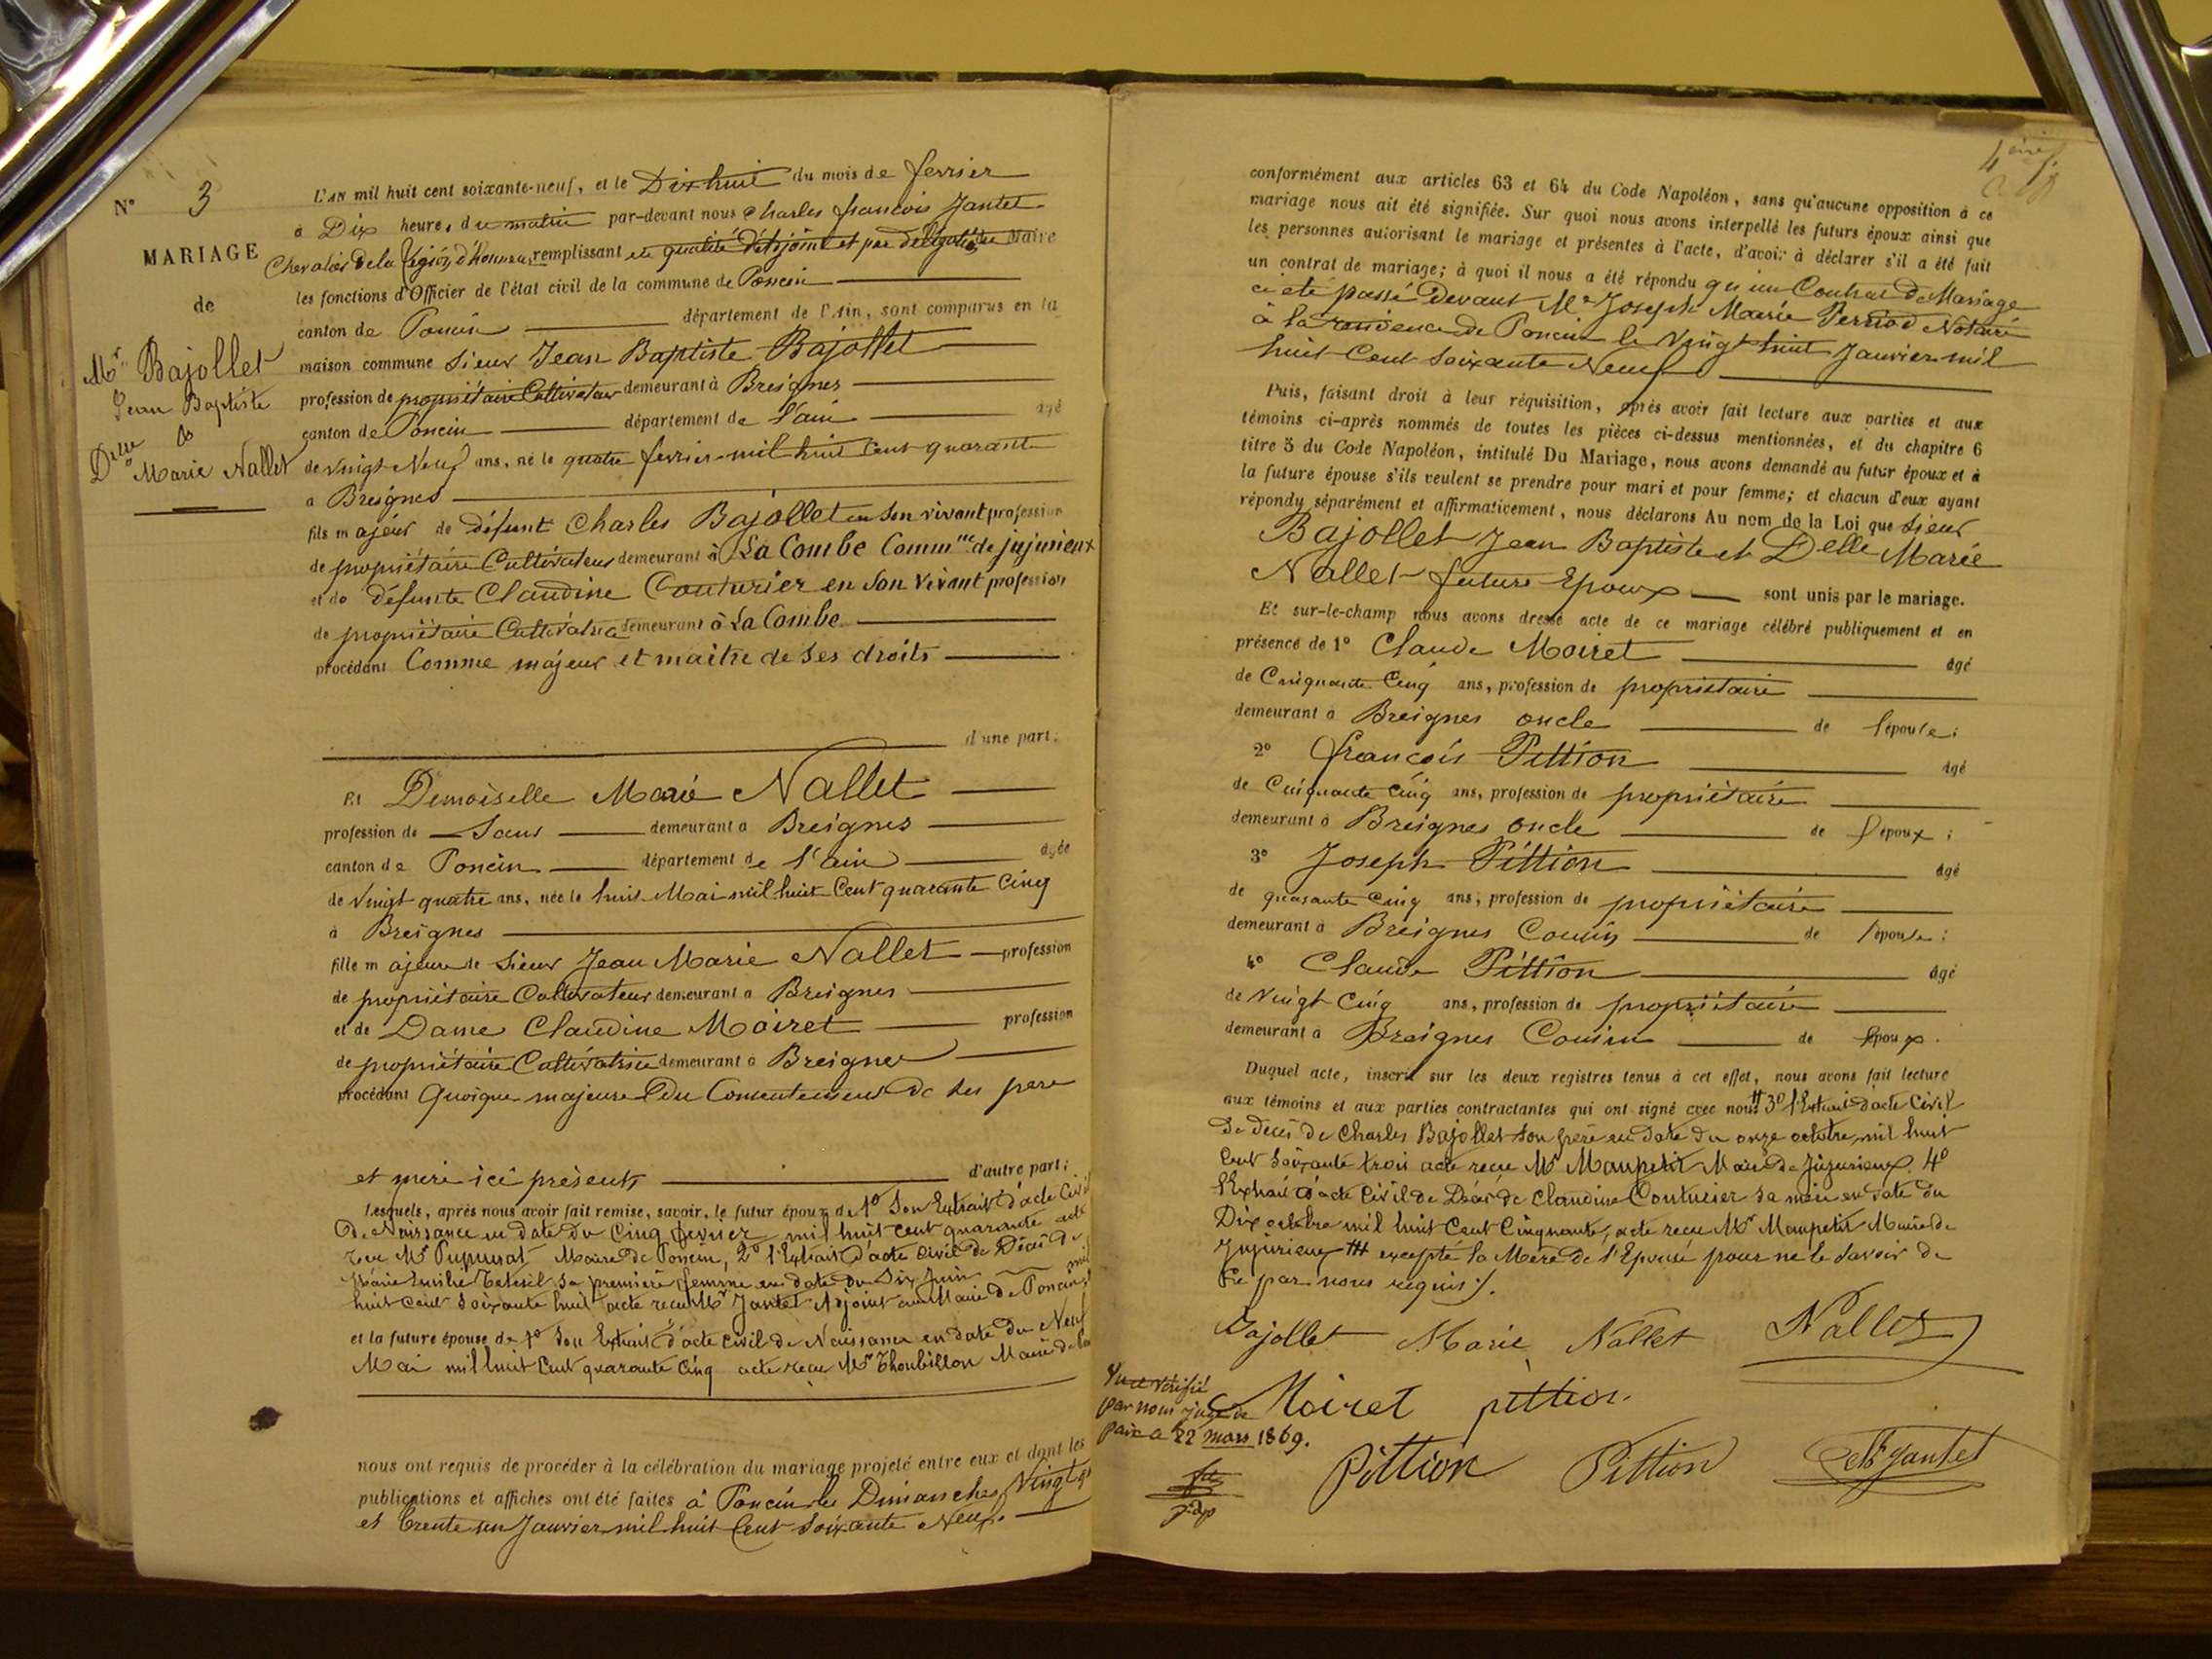 N° 3
MARIAGE
de
Mr Bajollet
Jean Baptiste
&
Delle Marie Nallet
L'AN mil huit cent soixante-neuf, et le Dix huit du mois de fevrier
à Dix heure, du matin par-devant nous Charles françois Jantet
Chevalier de la Légion d'honneur, remplissant en qualité d'adjoint et par délégation du Maire
les fonctions d'Officier de l'état civil de la commune de Poncin
canton de Poncin département de l'Ain, sont comparus en la
maison commune Sieur Jean Baptiste Bajollet
profession de propriétaire Cultivateur demeurant à Breignes
canton de Poncin département de l'ain âgé
de vingt Neuf ans, né le quatre fevrier mil huit Cent quarante
à Breignes
fils majeur de défunt Charles Bajollet en Son vivant profession
de propriétaire Cultivateur demeurant à La Combe Commne de jujurieux
et de défunte Claudine Couturier en Son vivant profession
de propriétaire Cultivatrice demeurant à La Combe
procédant Comme majeur et maitre de Ses droits
d'une part;
Et Demoiselle Marie Nallet
profession de Sans demeurant à Breignes
canton de Poncin département de l'ain âgée
de vingt quatre ans, née le huit Mai mil huit Cent quarante Cinq
à Breignes
fille majeure de Sieur Jean Marie Nallet profession
de propriétaire Cultivateur demeurant à Breignes
et de Dame Claudine Moiret profession
de propriétaire Cultivatrice demeurant à Breignes
procédant Quoique majeure Du Consentement de Ses pere
et mère ici présents d'autre part;
Lesquels, après nous avoir fait remise, savoir, le futur époux de 1° Son Extrait d'acte Civil
De Naissance en date du Cinq fevrier mil huit cent quarante acte
recu Mr Maire de Poncin, 2° l'Extrait d'acte civil de Décès de
Marie sa première femme en date du Six Juin mil
huit cent soixante huit acte recu Mr Jantet Adjoint au Maire de Poncin,
et la future épouse de 1° Son Extrait d'acte civil de Naissance en date du Neuf
Mai mil huit Cent quarante Cinq acte recu Mr Thoubillon Maire de
nous ont requis de procéder à la célébration du mariage projeté entre eux et dont les
publications et affiches ont été faites à Poncin les Dimanches Vingt
et trente un Janvier mil huit Cent Soixante Neuf.
conformément aux articles 63 et 64 du Code Napoléon, sans qu'aucune opposition à ce
mariage nous ait été signifiée. Sur quoi nous avons interpellé les futurs époux ainsi que
les personnes autorisant le mariage et présentes à l'acte, d'avoir à déclarer s'il a été fait
un contrat de mariage; à quoi il nous a été répondu qu'un Contrat de Mariage
a été passé Devant Me Joseph Marie Perriod Notaire
à la residence de Poncin le Vingt huit Janvier mil
huit Cent Soixante Neuf
Puis, faisant droit à leur réquisition, après avoir fait lecture aux parties et aux
témoins ci-après nommés de toutes les pièces ci-dessus mentionnées, et du chapitre 6
titre 5 du Code Napoléon, intitulé Du Mariage, nous avons demandé au futur époux et à
la future épouse s'ils veulent se prendre pour mari et pour femme; et chacun d'eux ayant
répondu séparément et affirmativement, nous déclarons Au nom de la Loi que Sieur
Bajollet Jean Baptiste et Delle Marie
Nallet future Epoux sont unis par le mariage.
Et sur-le-champ nous avons dressé acte de ce mariage célébré publiquement et en
présence de 1° Claude Moiret âgé
de Cinquante Cinq ans, profession de propriétaire
demeurant à Breignes oncle de l'épouse;
2° françois Pittion âgé
de Cinquante Cinq ans, profession de propriétaire
demeurant à Breignes oncle de l'époux;
3° Joseph Pittion âgé
de quarante Cinq ans, profession de propriétaire
demeurant à Breignes Cousin de l'épouse;
4° Claude Pittion âgé
de vingt Cinq ans, profession de propriétaire
demeurant à Breignes Cousin de l'époux.
Duquel acte, inscrit sur les deux registres tenus à cet effet, nous avons fait lecture
aux témoins et aux parties contractantes qui ont signé avec nous # 3° l'Extrait d'acte Civil
de Décès de Charles Bajollet son père en Date du onze octobre mil huit
Cent Soixante trois acte recu Mr Maupetit Maire de Jujurieux 4°
l'Extrait d'acte Civil de Décès de Claudine Couturier sa mère en date du
Dix octobre mil huit Cent Cinquante, acte recu Mr Maupetit Maire de
Jujurieux ## excepté la Mère de l'Epouse pour ne le Savoir de
ce par nous requis /.
Bajollet Marie Nallet Nallet
Moiret pittion
Pittion Pittion Ch F Jantet
Vu et Vérifié
par nous juge de
paix a 22 mars 1869.